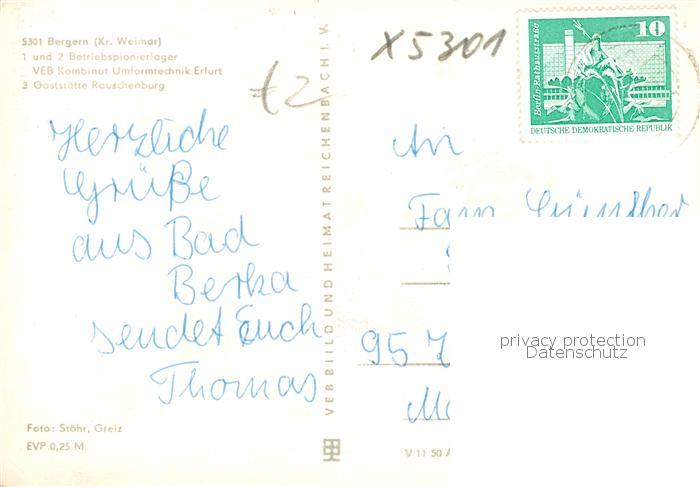 5301 Bergern (Kr. Weimar)
1 und 2 Betriebspionierlager
VEB Kombinat Umformtechnik Erfurt
3 Gaststätte Rauschenburg
X5301
€2
Berlin, Rathausstraße
10
DEUTSCHE DEMOKRATISCHE REPUBLIK
Herzliche
Grüße
aus Bad
Berka
sendet Euch
Thomas
VEB BILD UND HEIMAT REICHENBACH I. V.
An
Fam. Günther
957
privacy protection
Datenschutz
Foto: Stöhr, Greiz
EVP 0,25 M
V 11 50 A